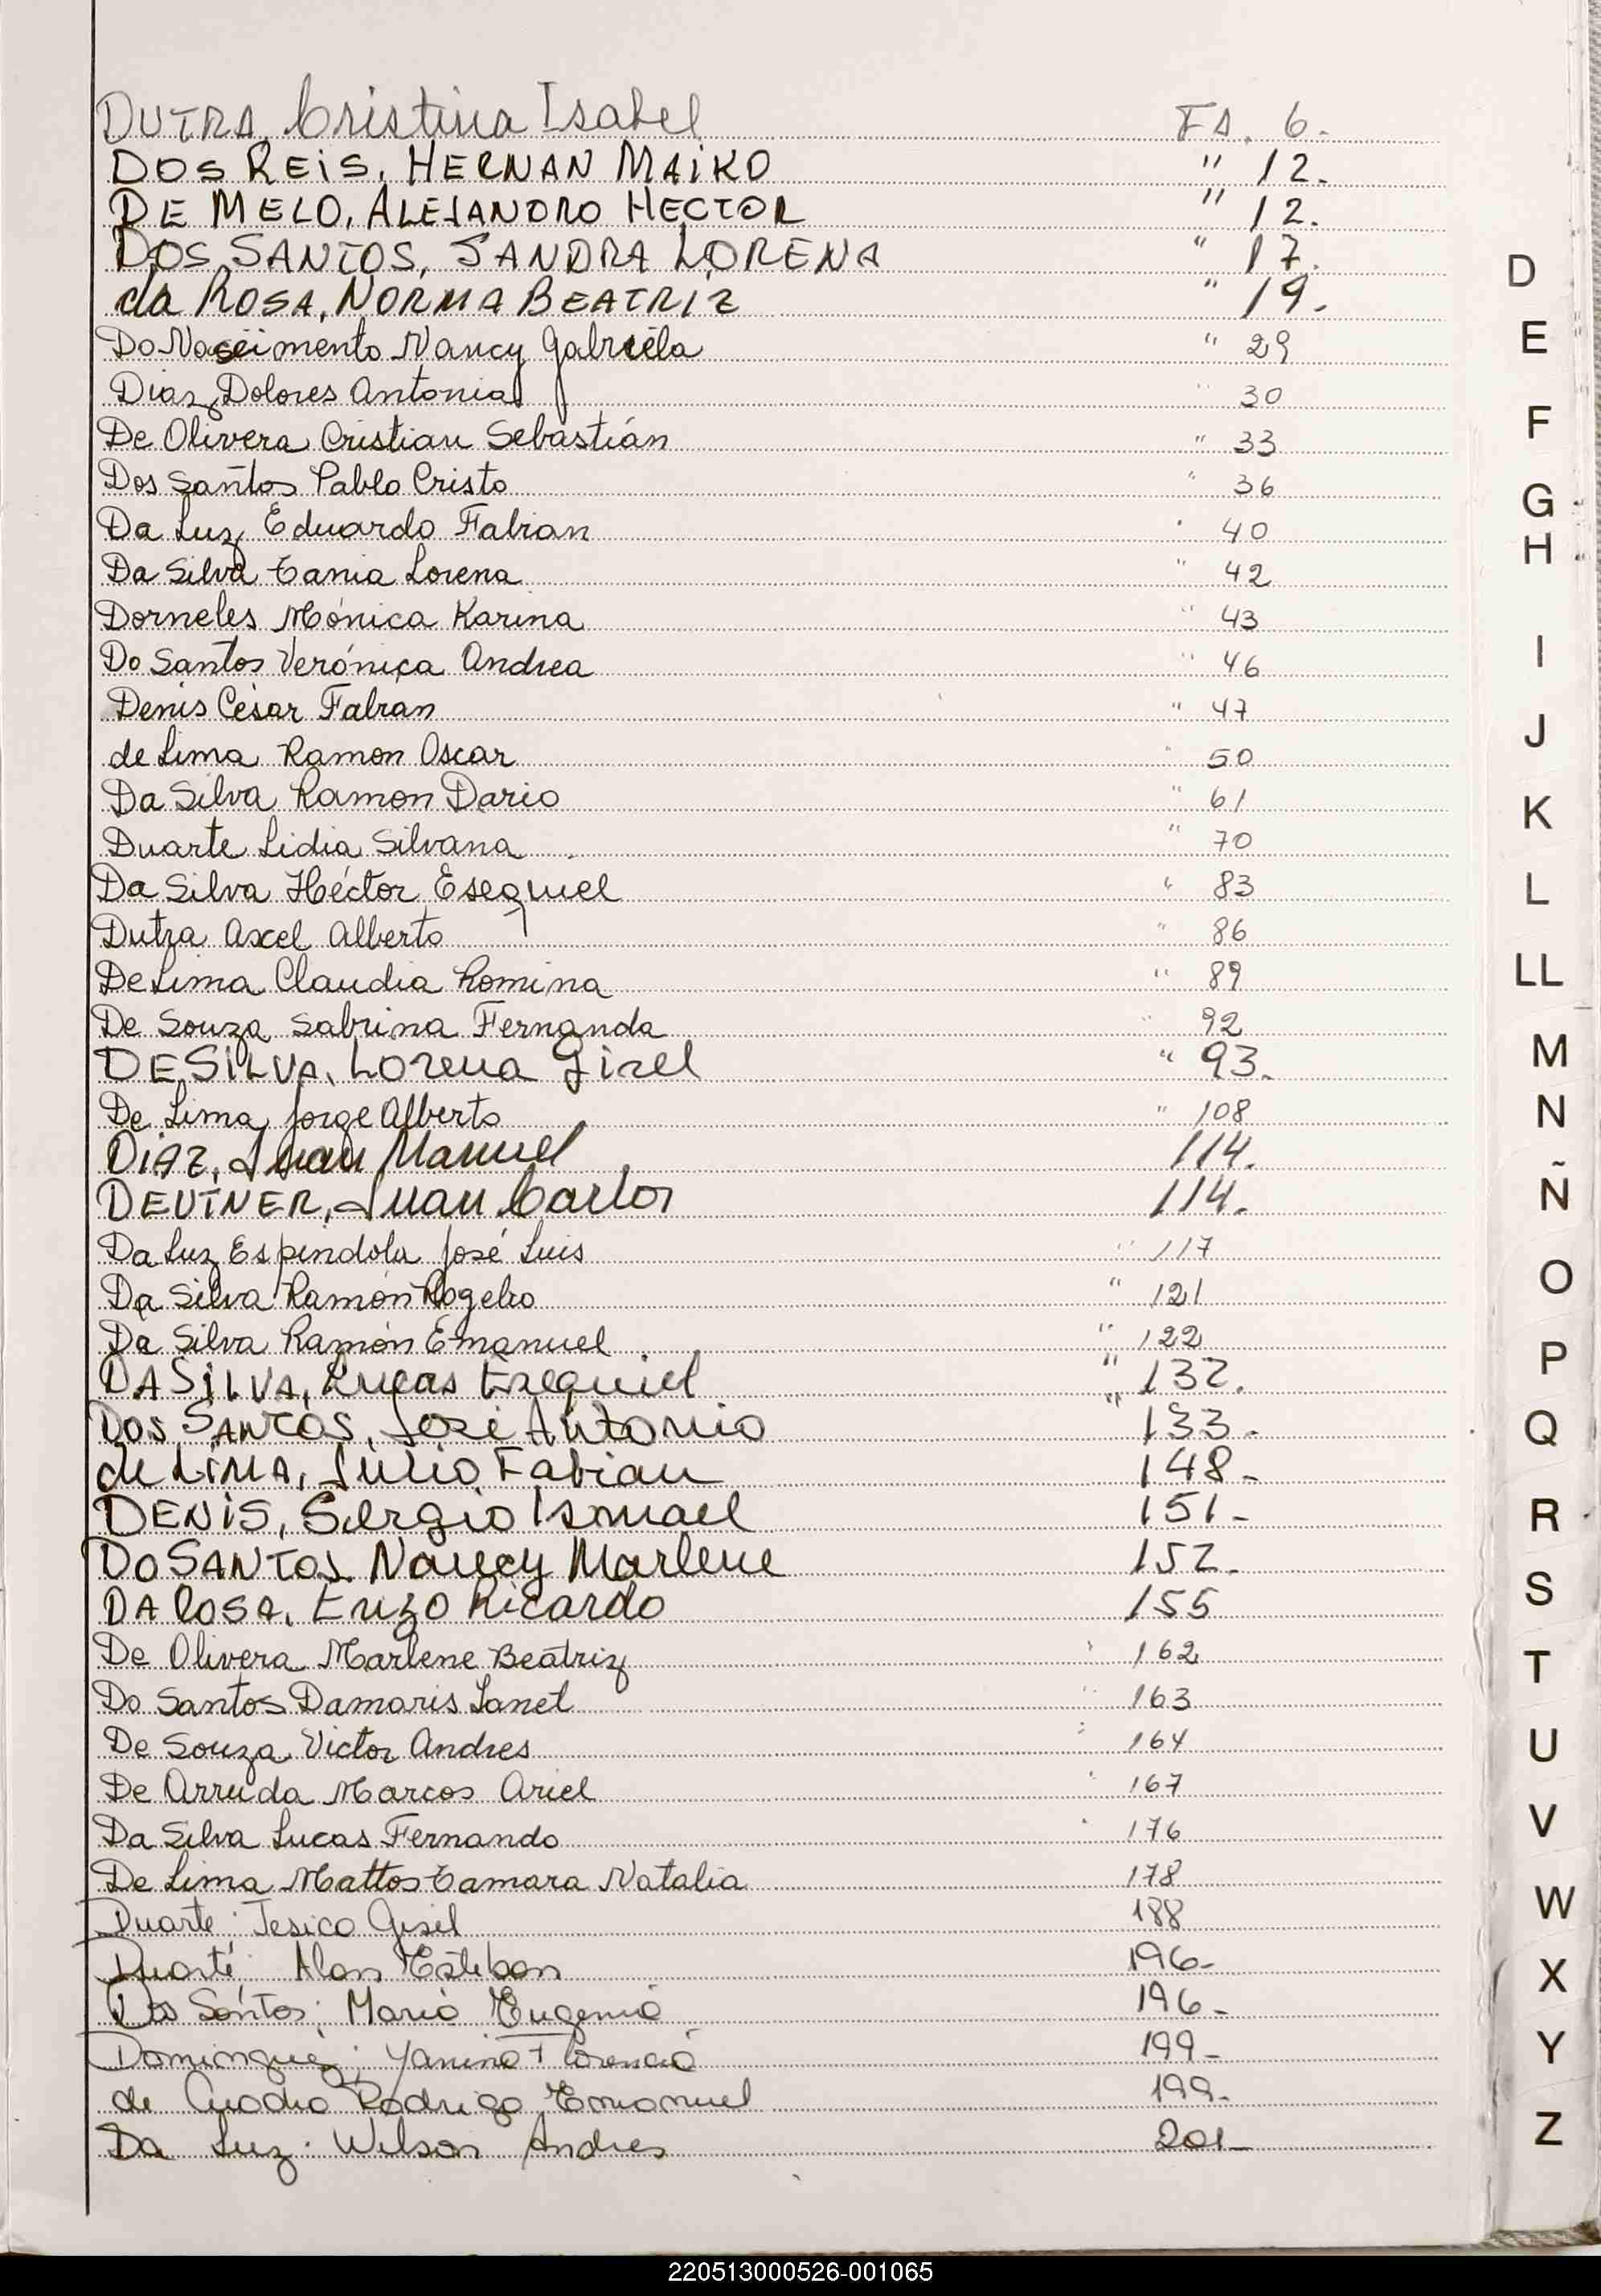 DUTRA, Cristina Isabel Fs. 6.
DOS REIS, HERNAN MAIKO " 12.
DE MELO, ALEJANDRO HECTOR " 12.
DOS SANTOS, SANDRA LORENA " 17.
da ROSA, NORMA BEATRIZ " 19.
Do Nascimento Nancy Gabriela " 29
Diaz Dolores Antonia " 30
De Olivera Cristian Sebastián " 33
Dos Santos Pablo Cristo " 36
Da Luz Eduardo Fabian " 40
Da Silva Tania Lorena " 42
Dorneles Mónica Karina " 43
Do Santos Verónica Andrea " 46
Denis César Fabian " 47
de Lima Ramon Oscar " 50
Da Silva Ramon Dario " 61
Duarte Lidia Silvana " 70
Da Silva Héctor Esequiel " 83
Dutra Axel Alberto " 86
De Lima Claudia Romina " 89
De Souza Sabrina Fernanda " 92
DE SILVA, Lorena Gisel " 93.
De Lima Jorge Alberto " 108
DIAZ, Juan Manuel 114.
DEUTNER, Juan Carlos 114.
Da Luz Espindola José Luis " 117
Da Silva Ramón Rogelio " 121
Da Silva Ramón Emanuel " 122
DA SILVA, Lucas Ezequiel " 132.
DOS SANTOS, José Antonio " 133.
de LIMA, Julio Fabian 148-
DENIS, Sergio Ismael 151-
DO SANTOS, Nancy Marlene 152.
DA ROSA, Enzo Ricardo 155
De Olivera Marlene Beatriz " 162
Do Santos Damaris Janet " 163
De Souza Victor Andres " 164
De Arruda Marcos Ariel " 167
Da Silva Lucas Fernando " 176
De Lima Mattos Tamara Natalia 178
Duarte; Jesica Gisel 188
Duarte; Alan Esteban 196-
Dos Santos; Maria Eugenia 196-
Dominguez; Yanina Florencia 199-
de Cuadro Rodrigo Emanuel 199-
Da Luz: Wilson Andres 201-
D
E
F
G
H
I
J
K
L
LL
M
N
Ñ
O
P
Q
R
S
T
U
V
W
X
Y
Z
220513000526-001065